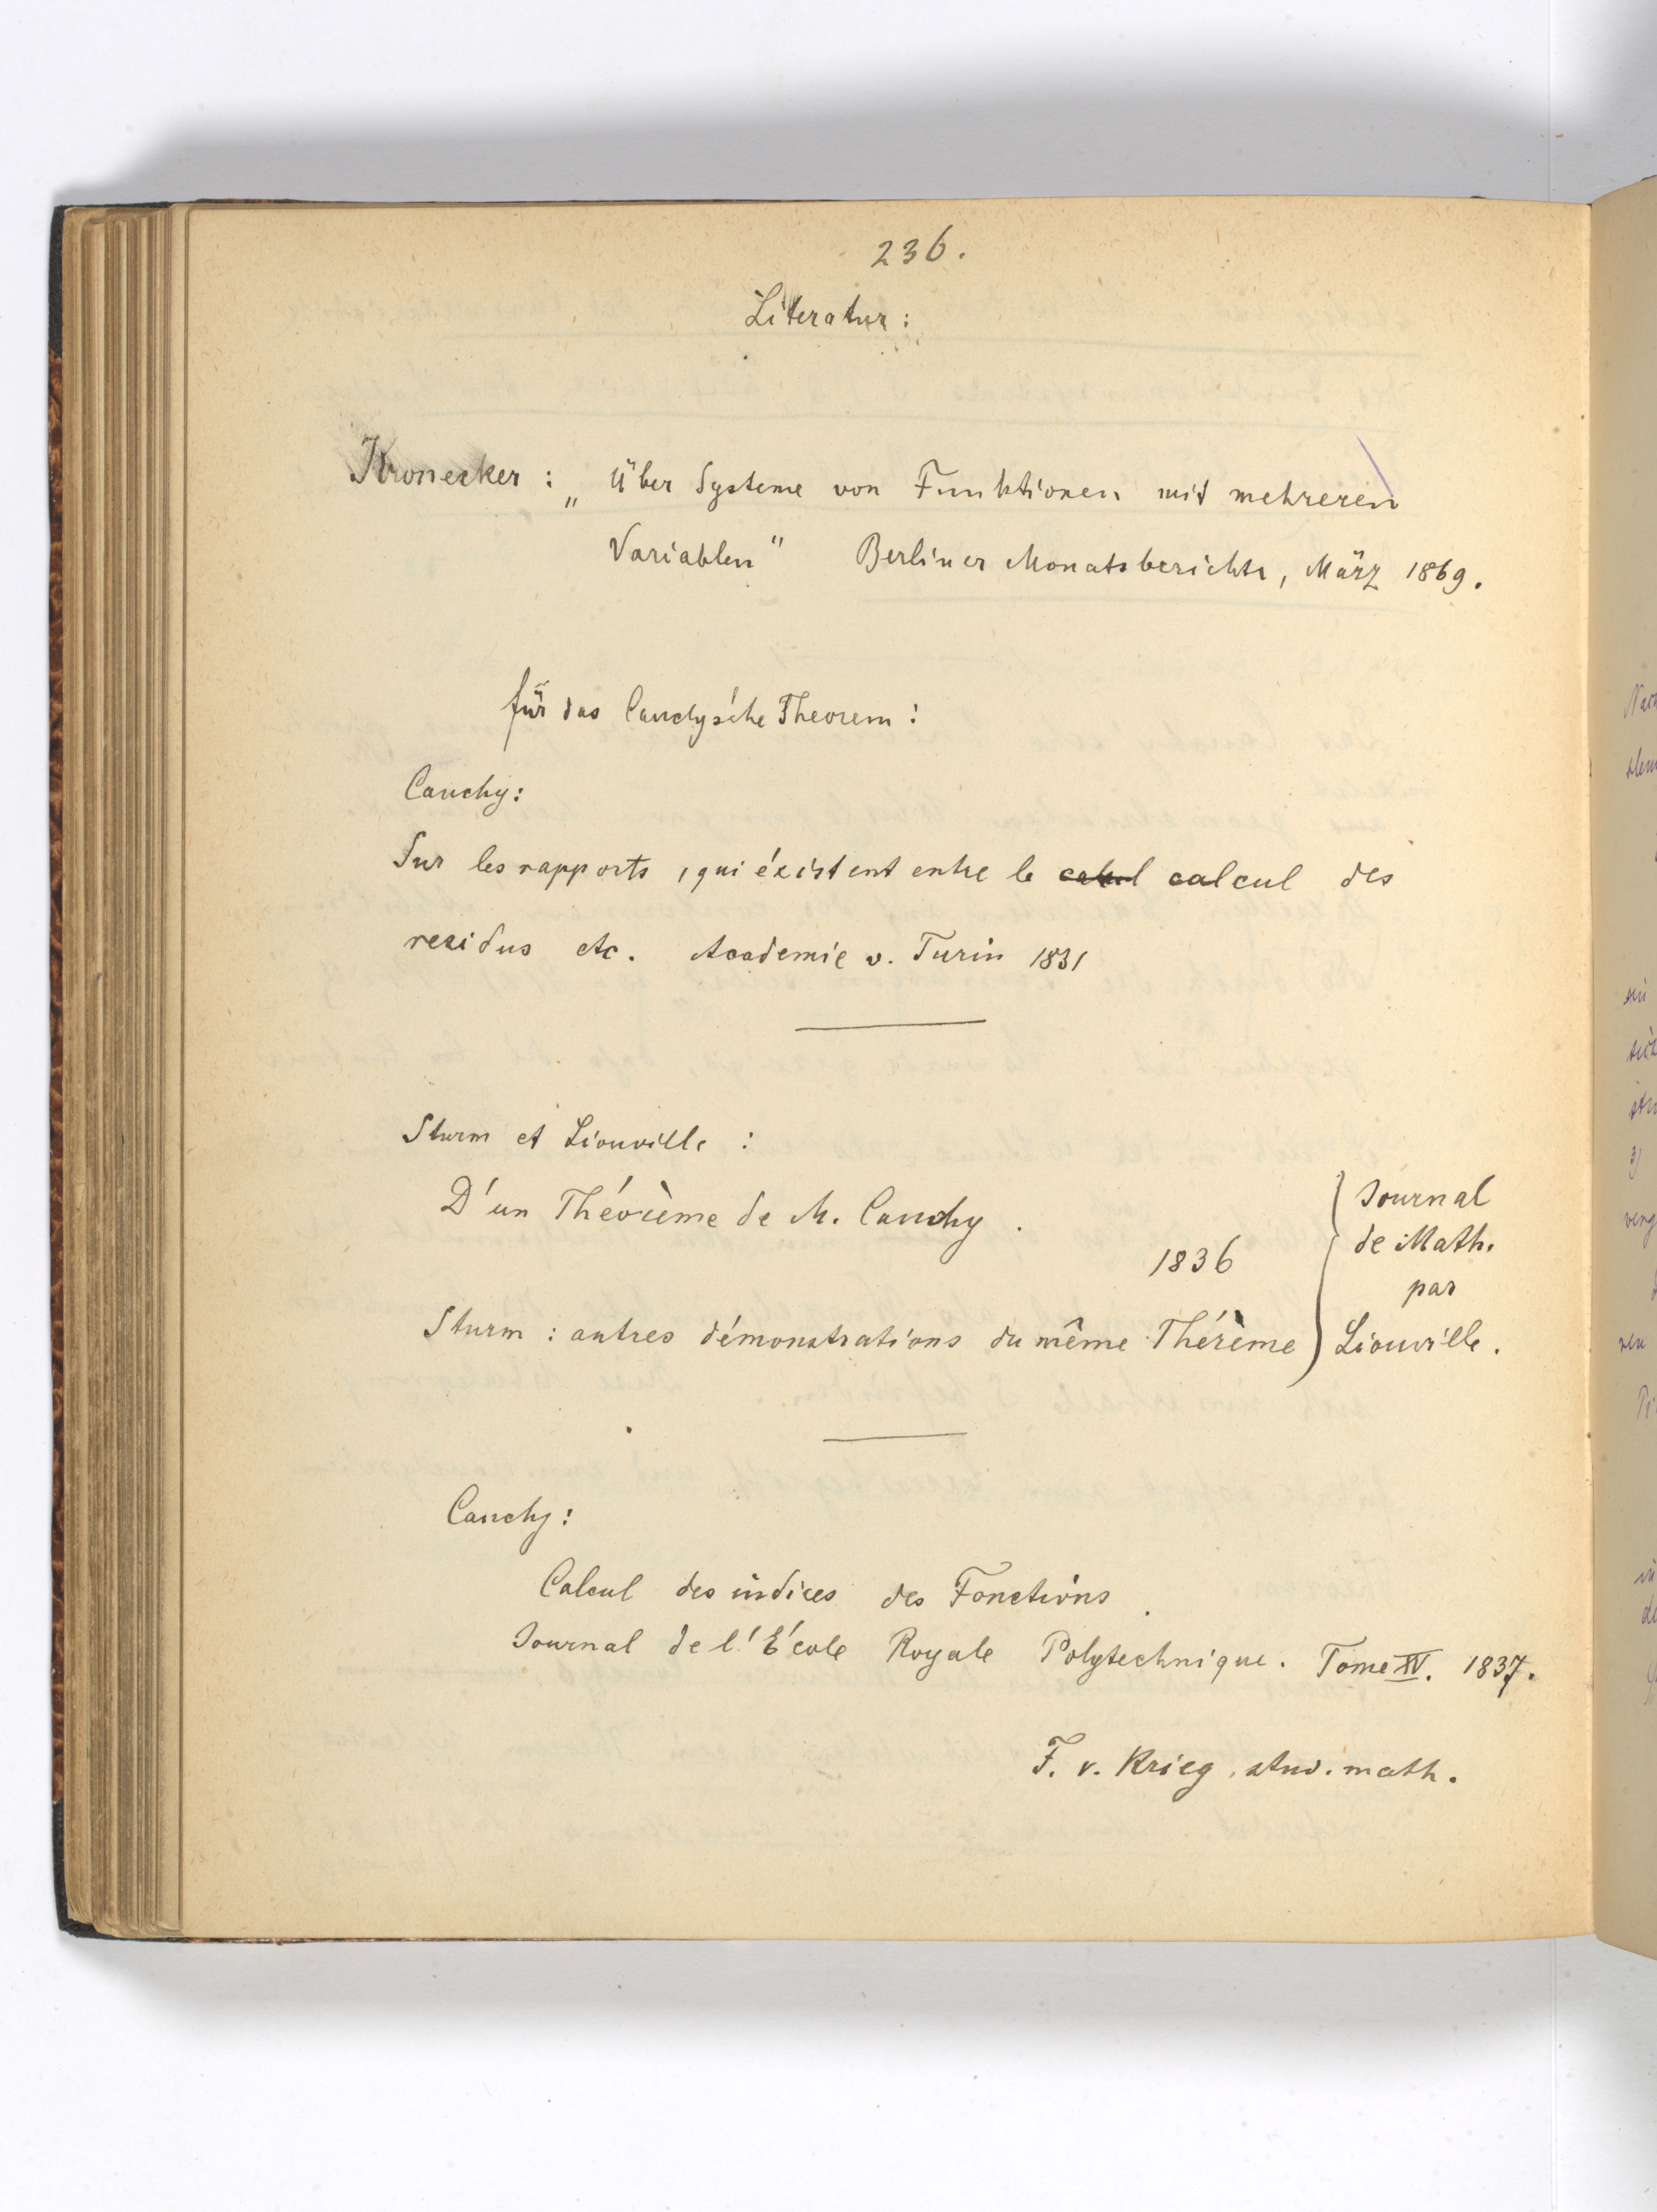 236.
Literatur:
Kronecker: „Über Systeme von Funktionen mit mehreren
Variablen" Berliner Monatsberichte, März 1869.
für das Cauchy'sche Theorem:
Cauchy:
Sur les rapports, qui éxistent entre le calcul des
residus etc. Academie v. Turin 1831
Sturm et Liouville:
D'un Théorème de M. Cauchy.
1836
Sturm: autres démonstrations du même Thérème
Journal
de Math.
par
Liouville.
Cauchy:
Calcul des indices des Fonctions.
Journal de l'École Royale Polytechnique. Tome XV. 1837.
F. v. Krieg, stud. math.